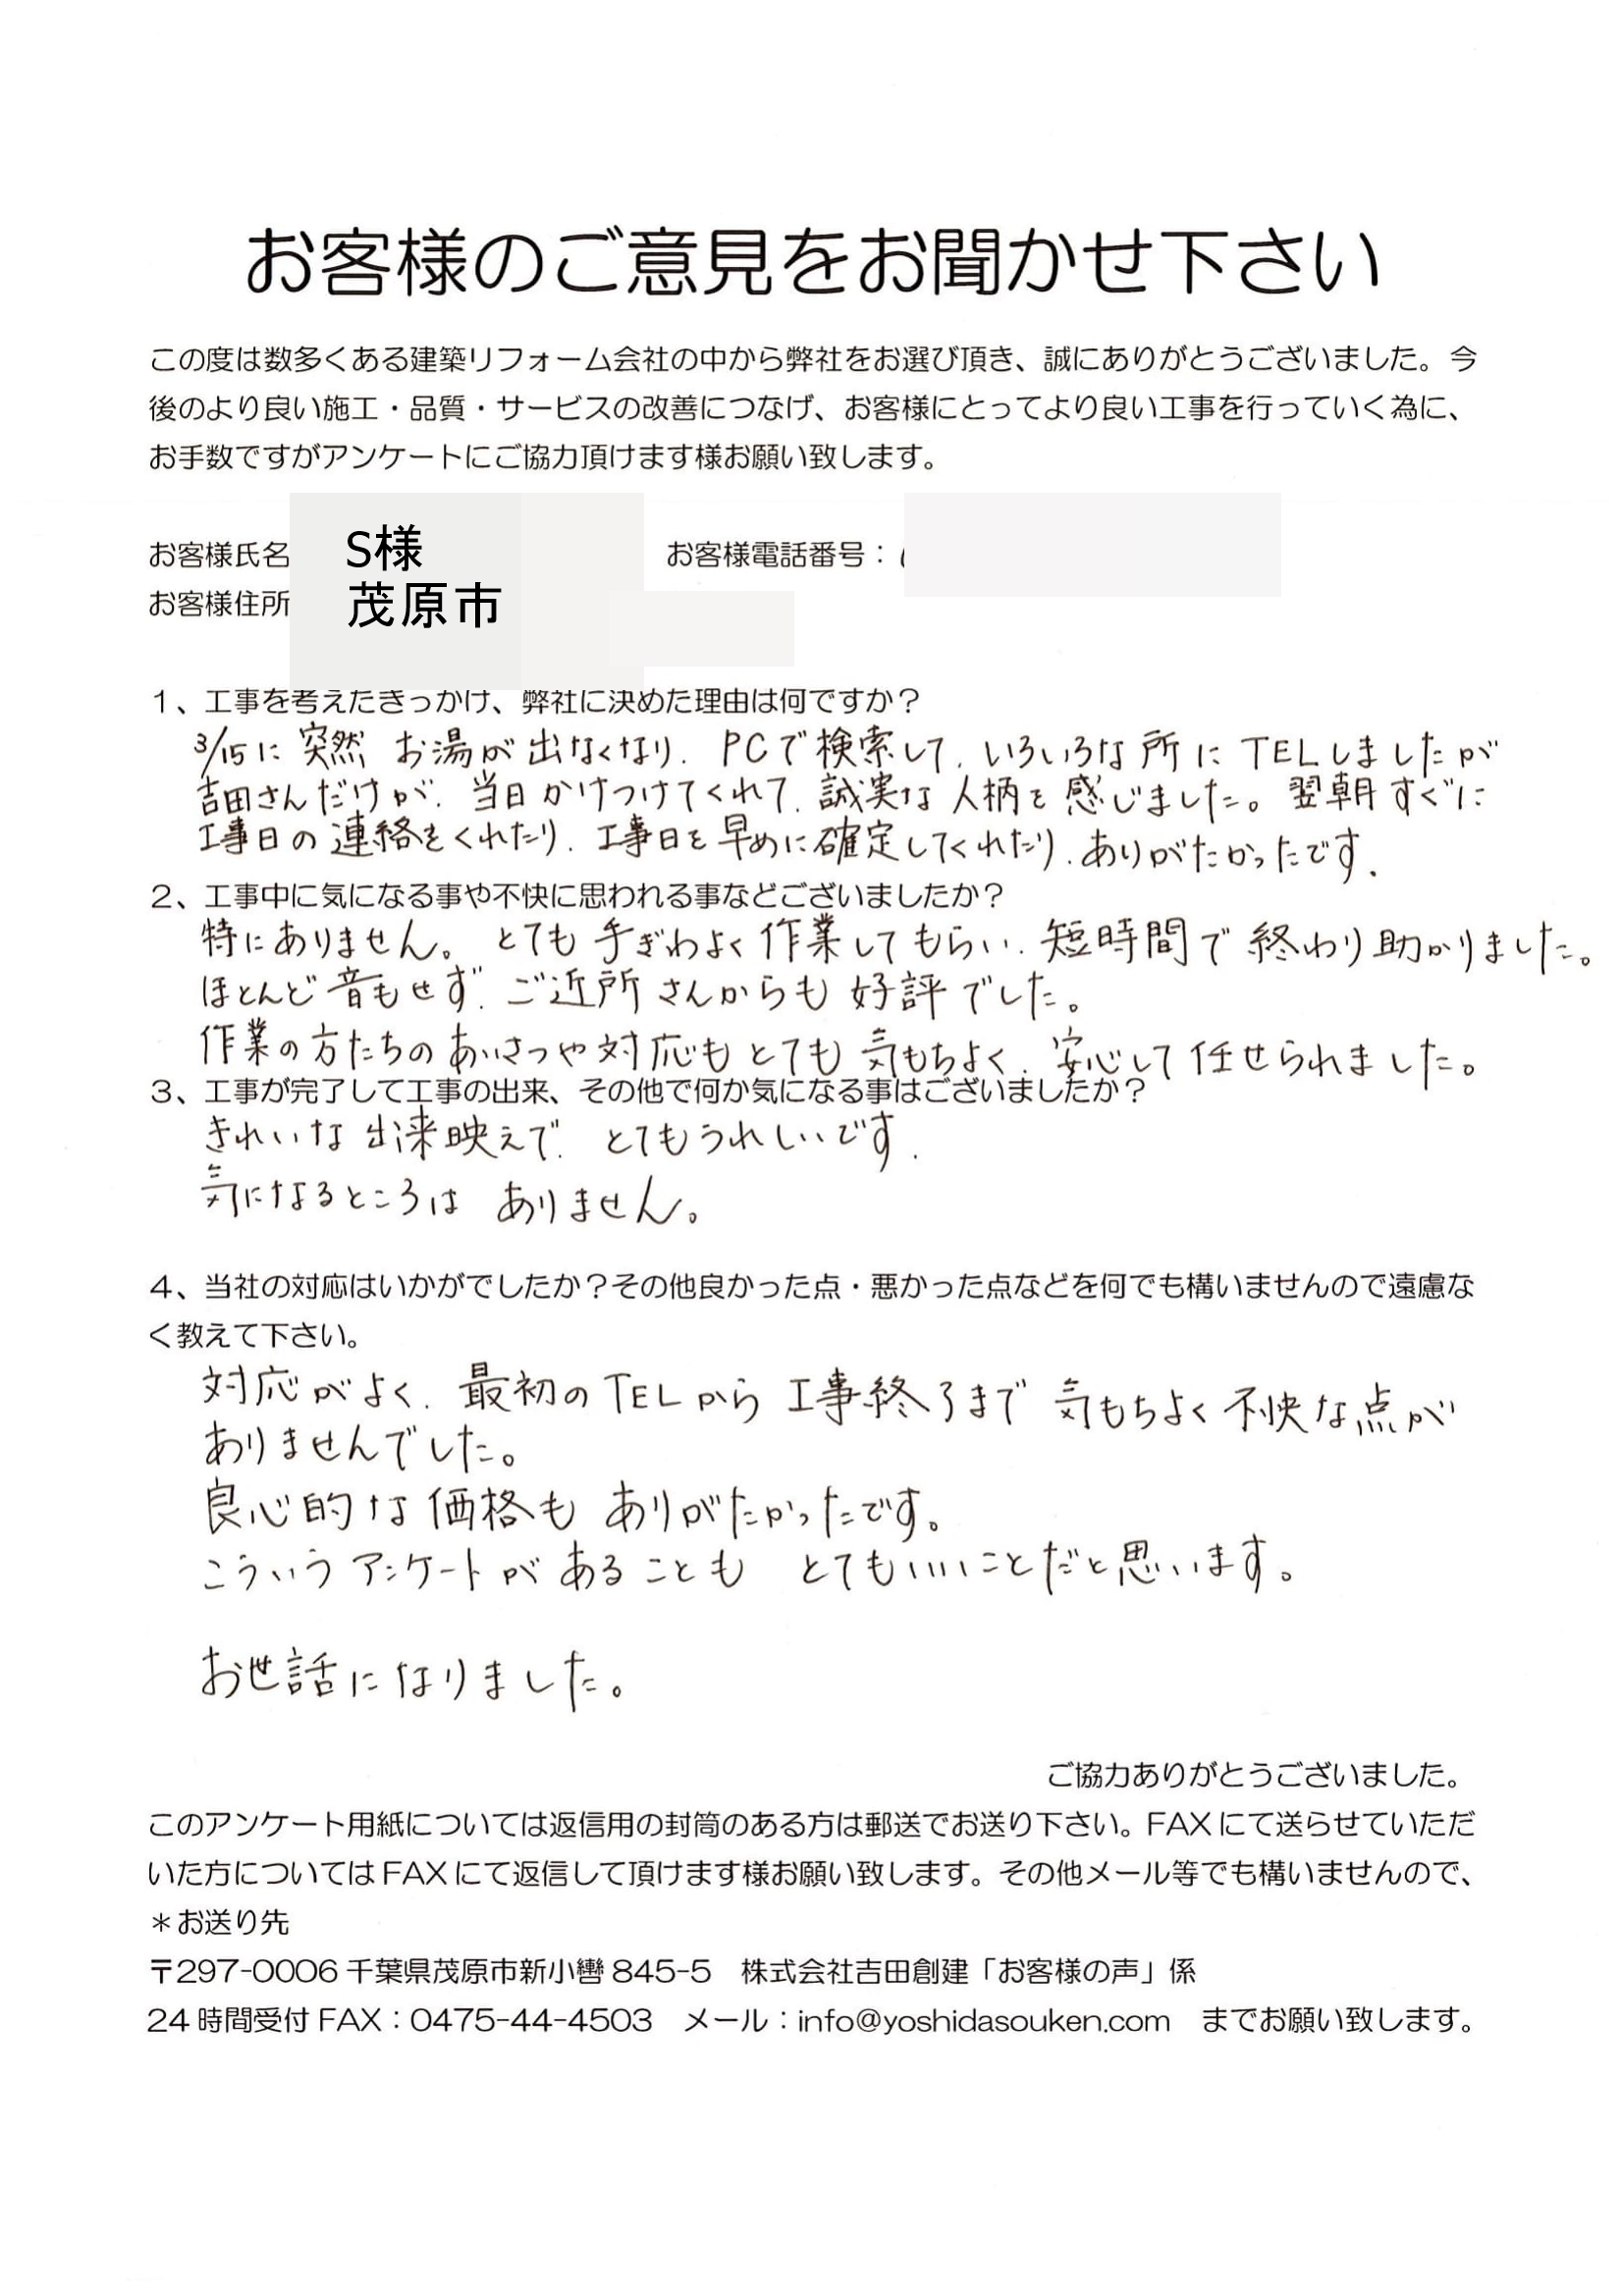 お客様のご意見をお聞かせ下さい
この度は数多くある建築リフォーム会社の中から弊社をお選び頂き、誠にありがとうございました。今
後のより良い施工・品質・サービスの改善につなげ、お客様にとってより良い工事を行っていく為に、
お手数ですがアンケートにご協力頂けます様お願い致します。
お客様氏名 S様 お客様電話番号：
お客様住所 茂原市
1、工事を考えたきっかけ、弊社に決めた理由は何ですか？
3/15に 突然 お湯が出なくなり、PCで検索して、いろいろな所にTELしましたが
吉田さんだけが、当日かけつけてくれて、誠実な人柄を感じました。翌朝すぐに
工事日の連絡をくれたり、工事日を早めに確定してくれたり、ありがたかったです。
2、工事中に気になる事や不快に思われる事などございましたか？
特にありません。とても手ぎわよく作業してもらい、短時間で終わり助かりました。
ほとんど音もせず、ご近所さんからも好評でした。
作業の方たちのあいさつや対応もとても気もちよく、安心して任せられました。
3、工事が完了して工事の出来、その他で何か気になる事はございましたか？
きれいな出来映えで、とてもうれしいです。
気になるところは ありません。
4、当社の対応はいかがでしたか？その他良かった点・悪かった点などを何でも構いませんので遠慮な
く教えて下さい。
対応がよく、最初のTELから工事終了まで気もちよく不快な点が
ありませんでした。
良心的な価格も ありがたかったです。
こういうアンケートがあることも とてもいいことだと思います。
お世話になりました。
ご協力ありがとうございました。
このアンケート用紙については返信用の封筒のある方は郵送でお送り下さい。FAXにて送らせていただ
いた方についてはFAXにて返信して頂けます様お願い致します。その他メール等でも構いませんので、
＊お送り先
〒297-0006 千葉県茂原市新小轡 845-5 株式会社吉田創建「お客様の声」係
24時間受付 FAX：0475-44-4503 メール：info@yoshidasouken.com までお願い致します。